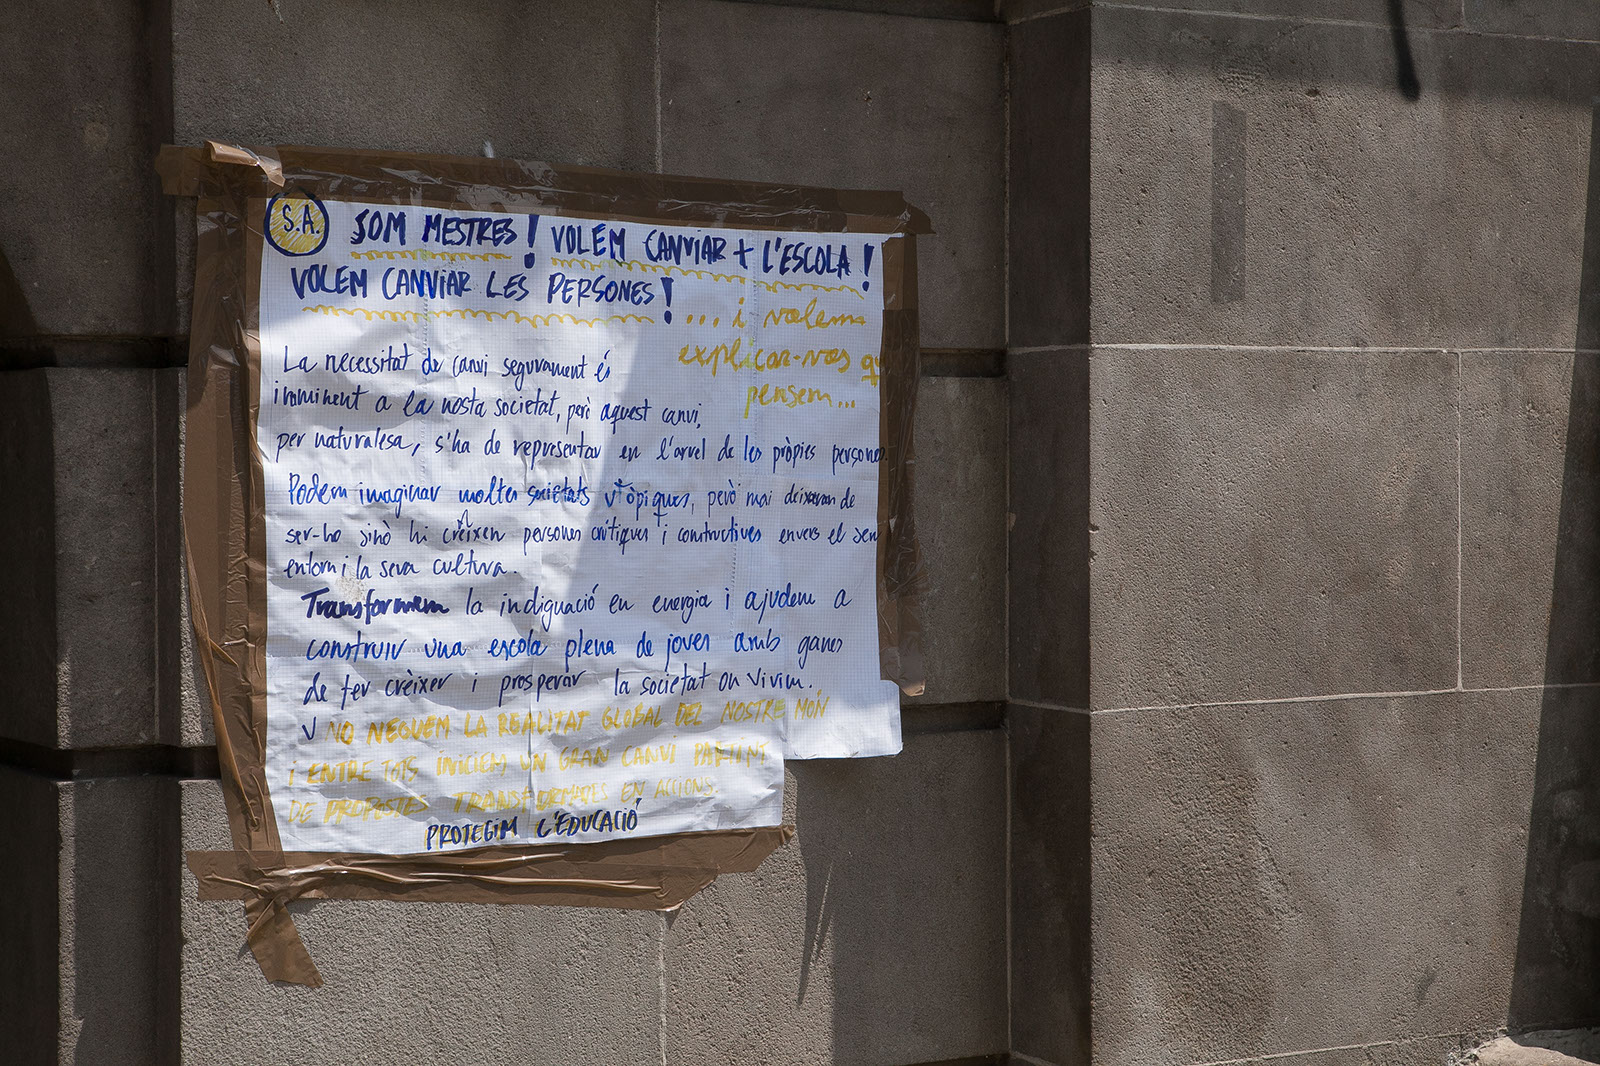 S.A. SOM MESTRES! VOLEM CANVIAR + L'ESCOLA!
VOLEM CANVIAR LES PERSONES!
... i volem
explicar-vos q
pensem...
La necessitat de canvi segurament és
imminent a la nosta societat, però aquest canvi,
per naturalesa, s'ha de representar en l'arrel de les pròpies persones.
Podem imaginar moltes societats utòpiques, però mai deixaran de
ser-ho sinó hi creixen persones crítiques i constructives envers el seu
entorn i la seva cultura.
Transformem la indignació en energia i ajudem a
construir una escola plena de joves amb ganes
de fer crèixer i prosperar la societat on vivim.
V NO NEGUEM LA REALITAT GLOBAL DEL NOSTRE MÓN
i ENTRE TOTS iNiCiEM UN GRAN CANVi PARTINT
DE PROPOSTES TRANSFORMADES EN ACCIONS.
PROTEGIM L'EDUCACIÓ